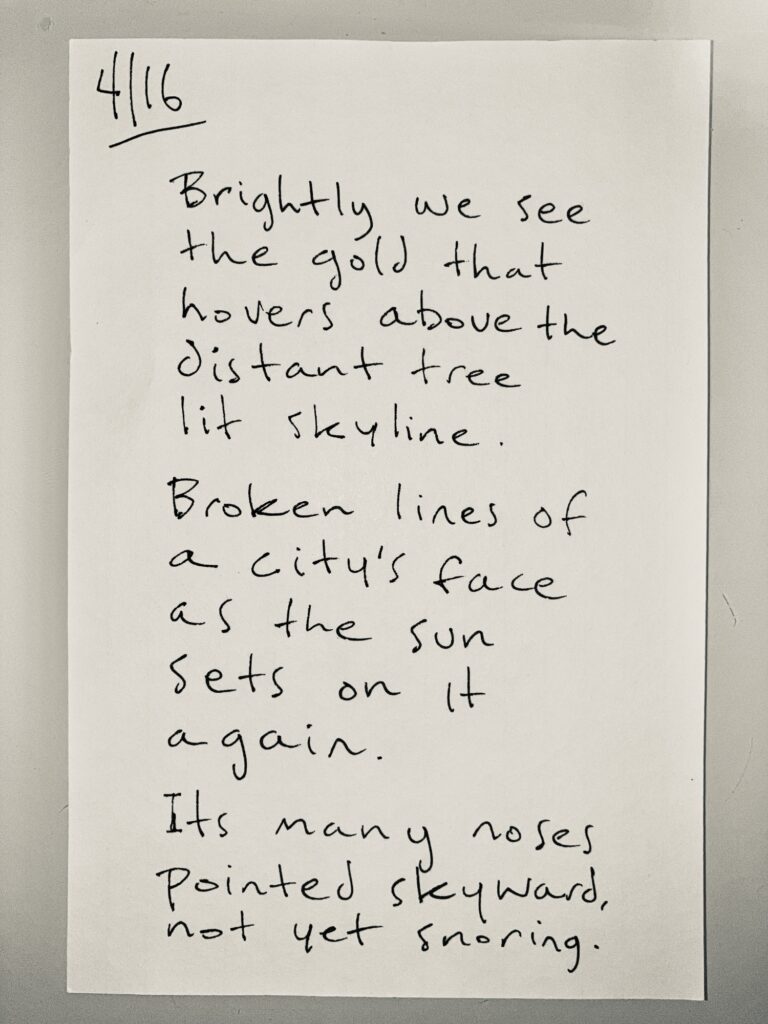 4/16
Brightly we see
the gold that
hovers above the
distant tree
lit skyline.
Broken lines of
a city's face
as the sun
sets on it
again.
Its many noses
pointed skyward,
not yet snoring.